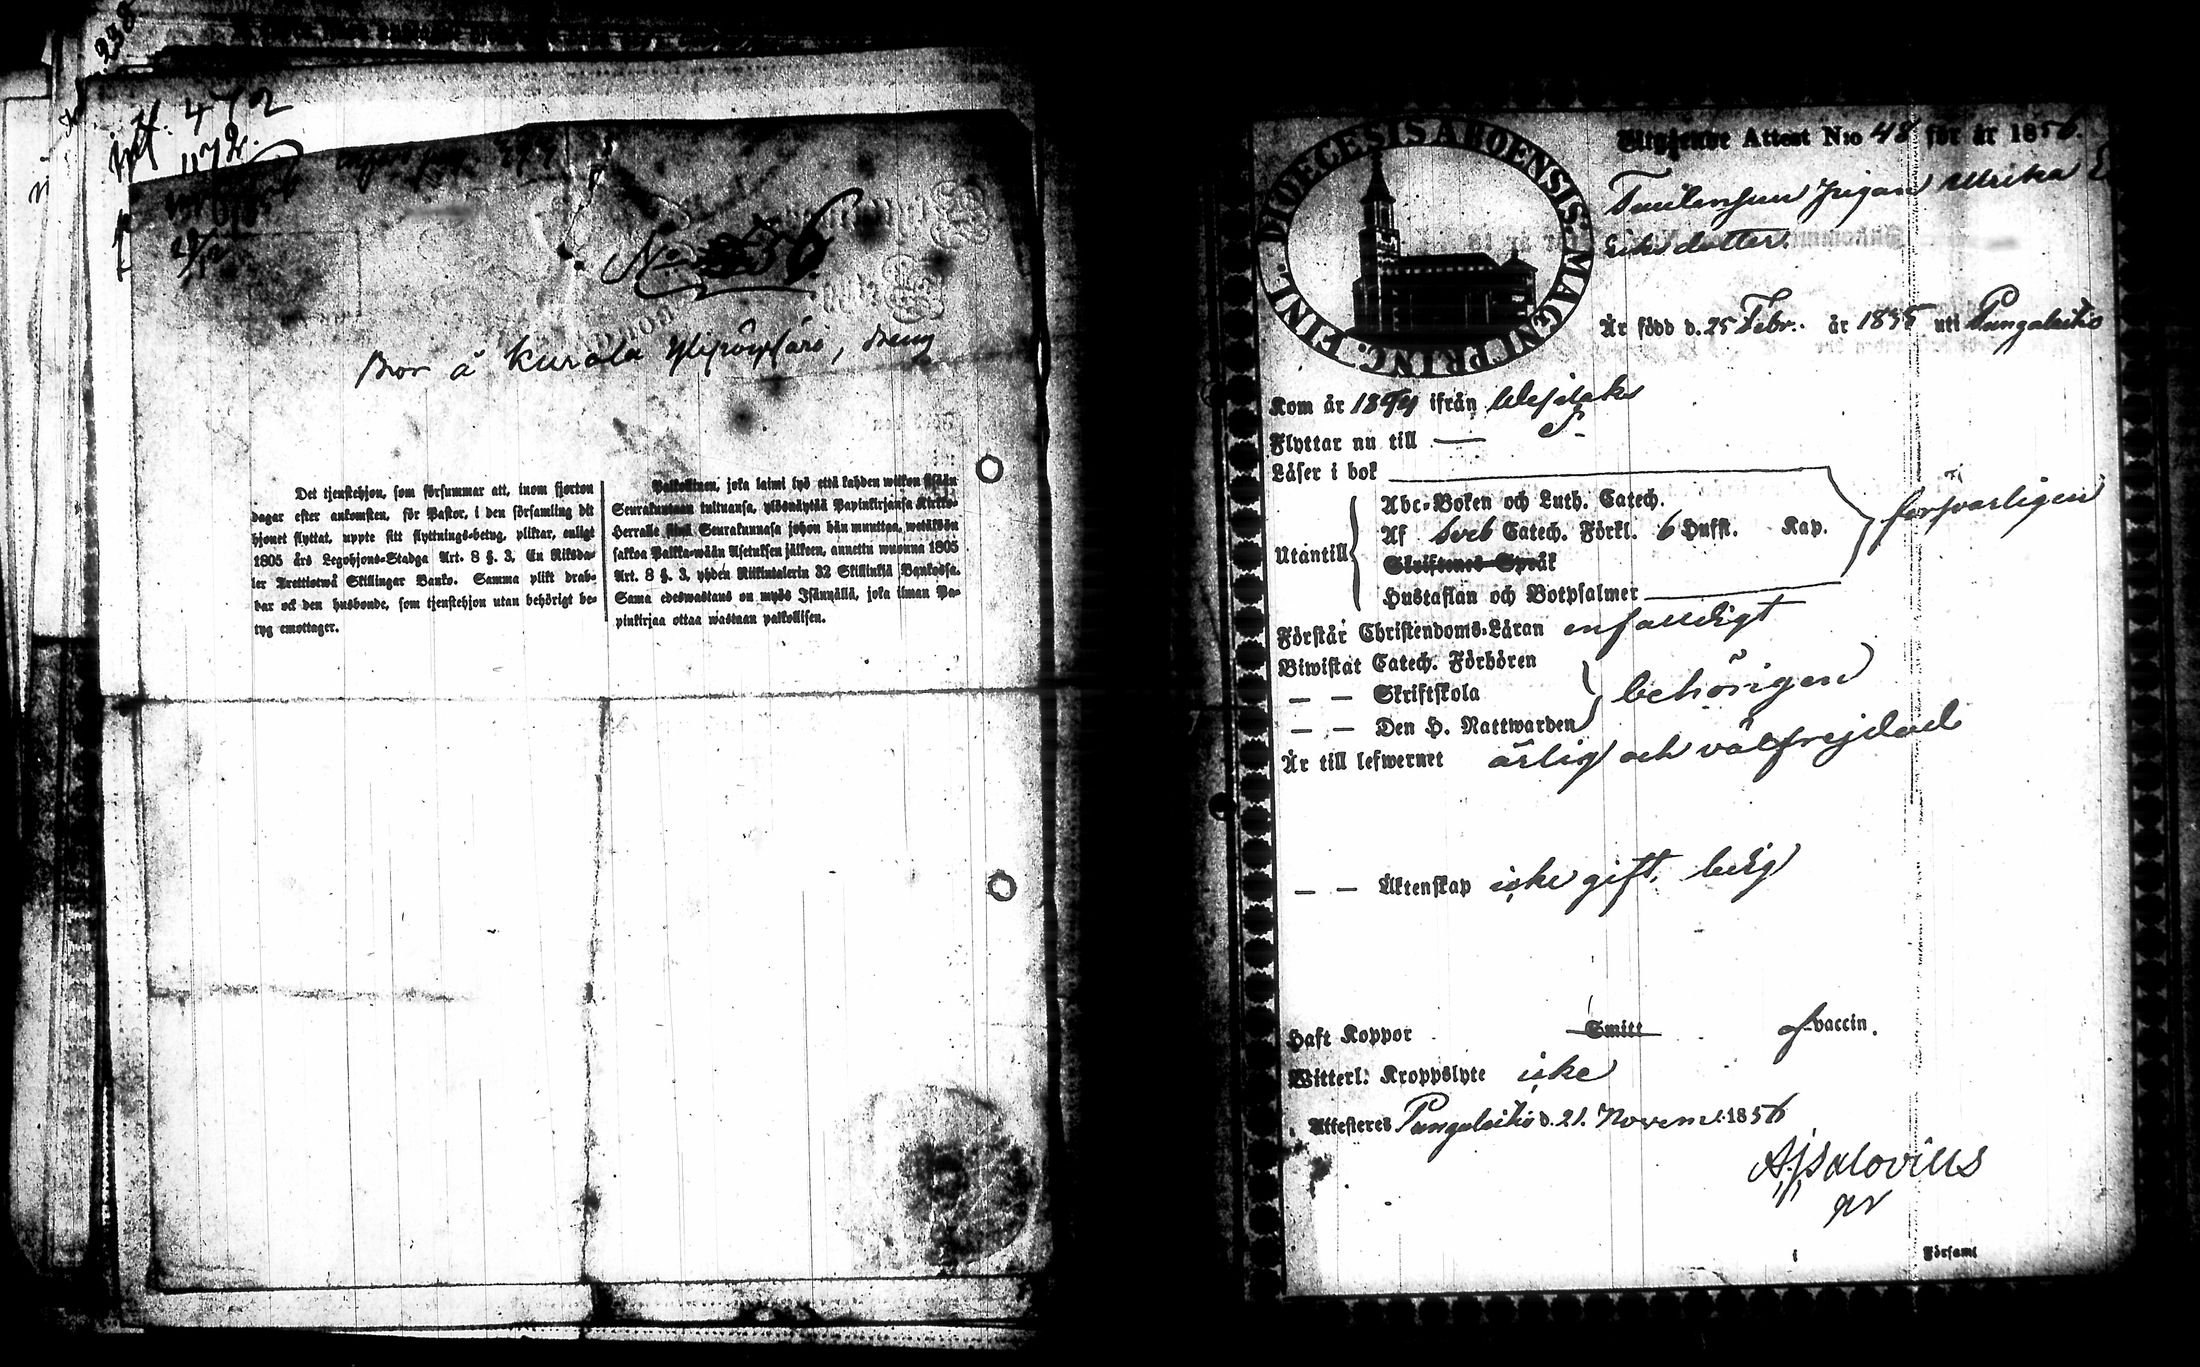 238
472
1172.
No 56
Bor å Kurala Ylipöysäri, dreng
Det tjenstehjon, som försummar att, inom fjorton
dagar efter ankomsten, för Pastor, i den församling dit
hjonet flyttat, uppte sitt flyttnings-betyg, pliktar, enligt
1805 års Legohjons-Stadga Art. 8 §. 3, En Riksda-
ler Trettiotwå Skillingar Banko. Samma plikt drab-
bar ock den husbonde, som tjenstehjon utan behörigt be-
tyg emottager.
Palkollinen, joka laimi lyö että kahden wiikon sisään
Seurakuntaan tultuansa, ylösnäyttää Papinkirjansa Kirkko-
Herralle siinä Seurakunnasa johon hän muuttaa, wetäköön
sakkoa Palkka-wään Asetuksen jälkeen, annettu wuonna 1805
Art. 8 §. 3, yhden Riikintalerin 32 Skillinkiä Bankossa.
Sama edeswastaus on myös Isännällä, joka ilman Pa-
pinkirjaa ottaa wastaan palkollisen.
DIOECESIS ABOENSIS. MAGNI PRINC. FINL.
Utgående Attest N:o 48 för år 1856.
Pigan Ulrika
Eriksdotter
Är född d. 25 Febr. år 1835 uti Pungalaitio
Kom år 1854 ifrån
Flyttar nu till —
Läser i bok
Abc-Boken och Luth. Catech.
Utantill Af Sveb Catech. Förkl. 6 Hufst. Kap.
försvarligen
Skriftenes Språk
Hustaflan och Botpsalmer
Förstår Christendoms-Läran enfaldigt
Biwistat Catech. Förhören
— — Skriftskola behörigen
— — Den H. Nattwarden
Är till lefwernet ärlig och välfrejdad
— — Äktenskap icke gift, ledig
Haft Koppor Smitt af vaccin.
Witterl. Kroppslyte icke
Attesteres Pungalaitio d. 21. Novem. 1856
Salovius
i Församl